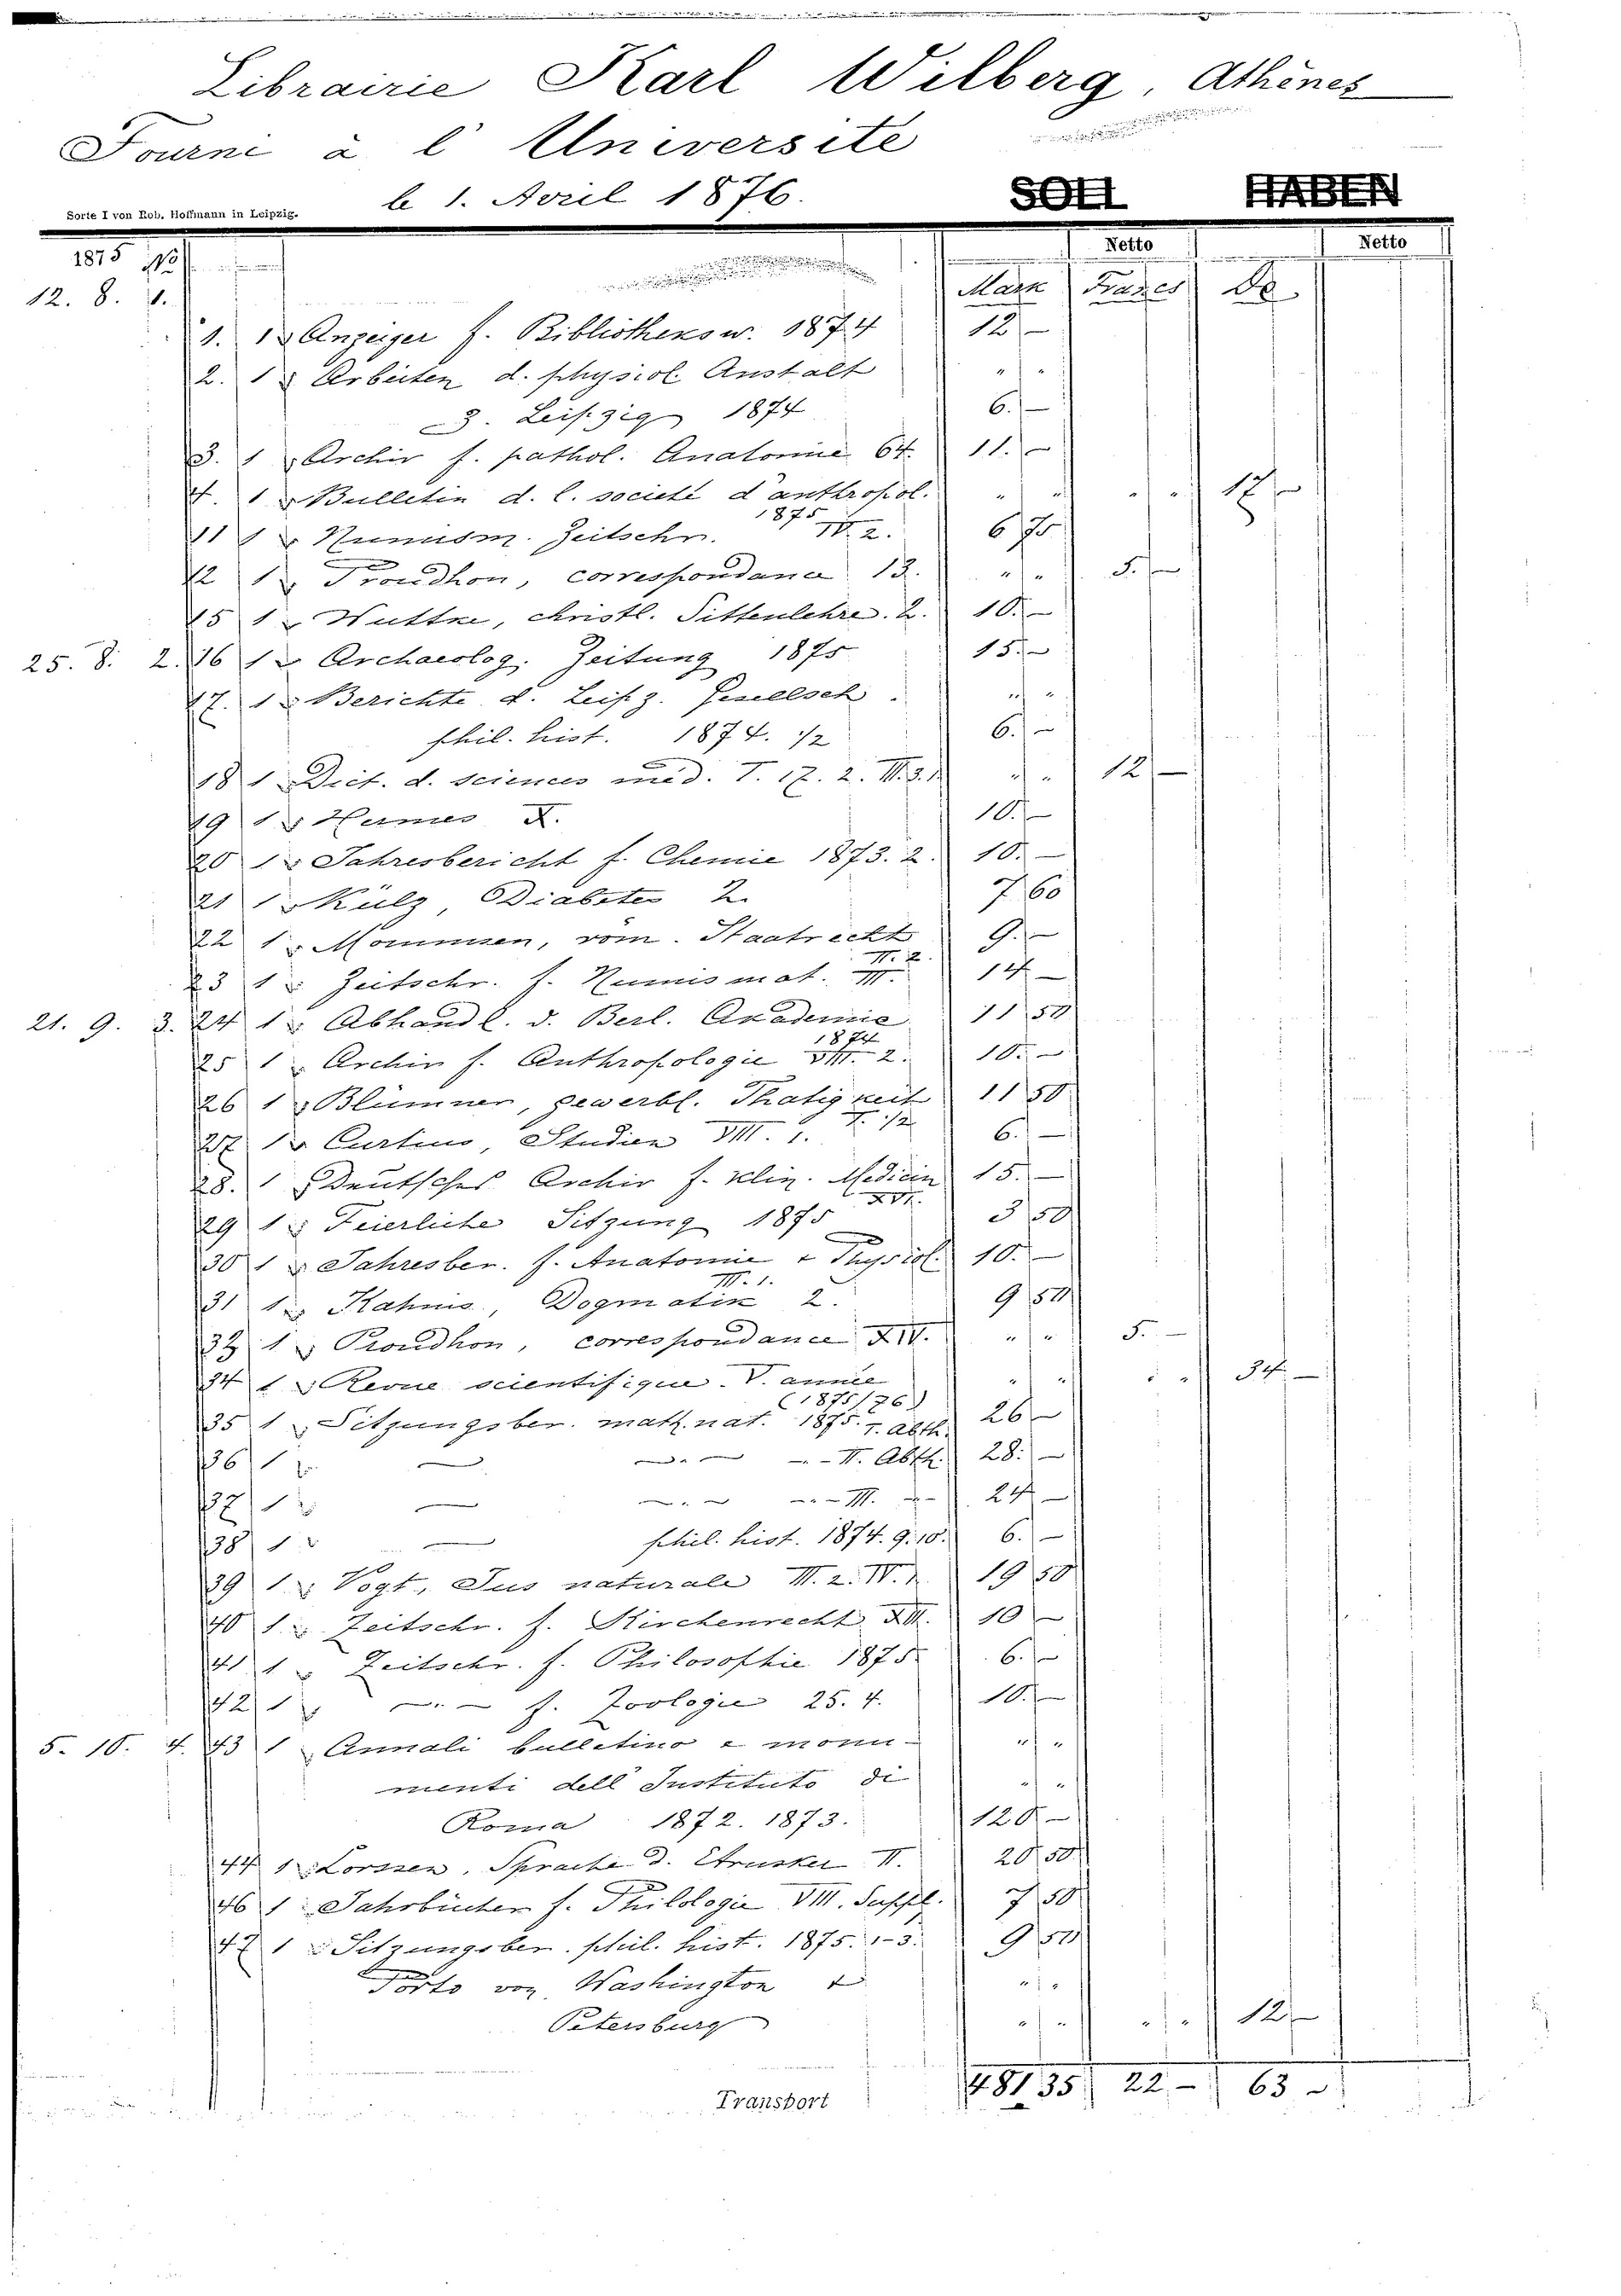 Librairie Karl Wilberg, Athènes
Fourni à l'Université
le 1. Avril 1876.
SOLL HABEN
Sorte I von Rob. Hoffmann in Leipzig.
Netto Netto
1875 No
12. 8. 1. Mark Francs Dr.
1. 1 Anzeiger f. Bibliotheksw. 1874 12 —
2. 1 Arbeiten d. physiol. Anstalt " "
z. Leipzig 1874 6. —
3. 1 Archiv f. pathol. Anatomie 64. 11. —
4. 1 Bulletin d. l. societé d'anthropol. " " " " 17 —
1875
11 1 Numism. Zeitschr. IV. 2. 6 75
12 1 Proudhon, correspondance 13. " " 5. —
15 1 Wuttke, christl. Sittenlehre. 2. 10. —
25. 8. 2. 16 1 Archaeolog. Zeitung 1875 15. —
17. 1 Berichte d. Leipz. Gesellsch. " "
phil. hist. 1874. 1/2 6. —
18 1 Dict. d. sciences méd. T. 17. 2. III. 3. 1 " " 12 —
19 1 Hermes X. 10. —
20 1 Jahresbericht f. Chemie 1873. 2. 10. —
21 1 Külz, Diabetes 2. 7 60
22 1 Mommsen, röm. Staatrecht 9. —
II. 2.
23 1 Zeitschr. f. Numismat. III. 14 —
21. 9. 3. 24 1 Abhandl. d. Berl. Academie 11 50
1874
25 1 Archiv f. Anthropologie VIII. 2. 10. —
26 1 Blümner, gewerbl. Thätigkeit 11 50
I. 1/2
27 1 Curtius, Studien VIII. 1. 6. —
28. 1 Deutsches Archiv f. klin. Medicin 15. —
XVI.
29 1 Feierliche Sitzung 1875 3 50
30 1 Jahresber. f. Anatomie + Physiol. 10. —
III. 1.
31 1 Kahnis, Dogmatik 2. 9 50
33 1 Proudhon, correspondance XIV. " " 5. —
34 1 Revue scientifique. V. année " " " " 34 —
(1875/76)
35 1 Sitzungsber. math. nat. 1875. I. Abth. 26 —
36 1 — — " — — " — II. Abth. 28. —
37 1 — — " — — " — III. — " — 24 —
38 1 — phil. hist. 1874. 9. 10. 6. —
39 1 Vogt, Jus naturale III. 2. IV. 1. 19 50
40 1 Zeitschr. f. Kirchenrecht XII. 10 —
41 1 Zeitschr. f. Philosophie 1875 6. —
42 1 — " — f. Zoologie 25. 4. 10. —
5. 10. 4. 43 1 Annali bulletino e monu- " "
menti dell' Instituto di " "
Roma 1872. 1873. 120 —
44 1 Corssen, Sprache d. Etrusker II. 20 50
46 1 Jahrbücher f. Philologie VIII. Suppl. 7 50
47 1 Sitzungsber. phil. hist. 1875. 1-3. 9 50
Porto von Washington + " "
Petersburg " " " " 12 —
Transport 481 35 22 — 63 —